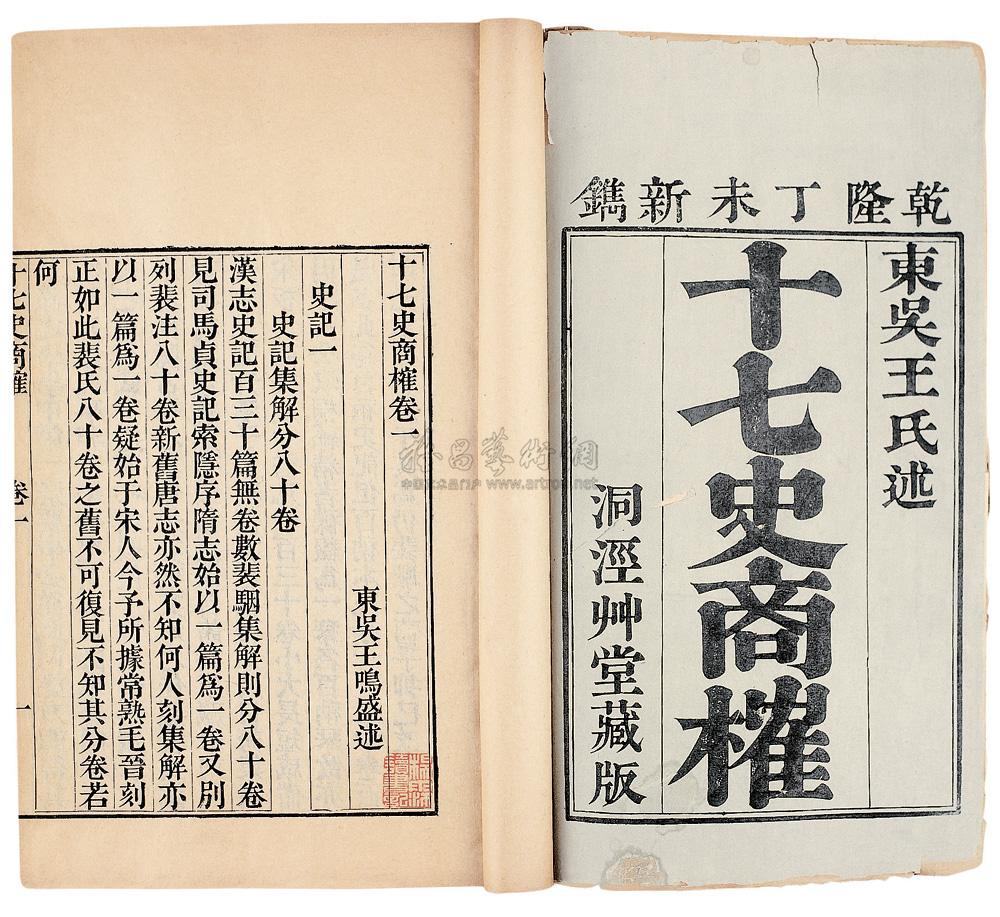 乾隆丁未新鐫
東吳王氏述
十七史商榷
洞涇艸堂藏版
十七史商榷卷一
東吳王鳴盛述
史記一
史記集解分八十卷
漢志史記百三十篇無卷數裴駰集解則分八十卷
見司馬貞史記索隱序隋志始以一篇爲一卷又別
列裴注八十卷新舊唐志亦然不知何人刻集解亦
以一篇爲一卷疑始于宋人今予所據常熟毛晉刻
正如此裴氏八十卷之舊不可復見不知其分卷若
何
十七史商榷
卷一
一
www.artron.net